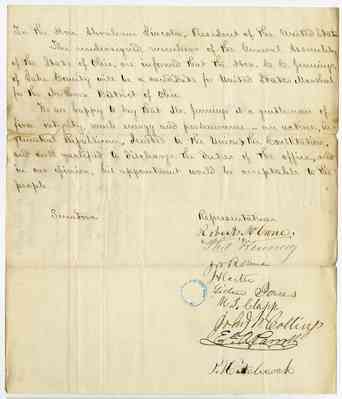 To the Hon Abraham Lincoln, President of the United States
The undersigned members of the General Assembly
of the State of Ohio, are informed that the Hon. C. C. Jennings
of Lake County will be a candidate for United States Marshal
for the Northern District of Ohio.
We are happy to say that Mr. Jennings is a gentleman of
fine ability, much energy and perseverance – an active,
Republican, devoted to the Union & the Constitution,
and well qualified to discharge the duties of the office, and
in our opinion, his appointment would be acceptable to the
people.
Senators
Representatives
Robert
Thos
J
Carter
Gideon Jones
M. L. Clapp
John W Collings
Parrott
Hitchcock